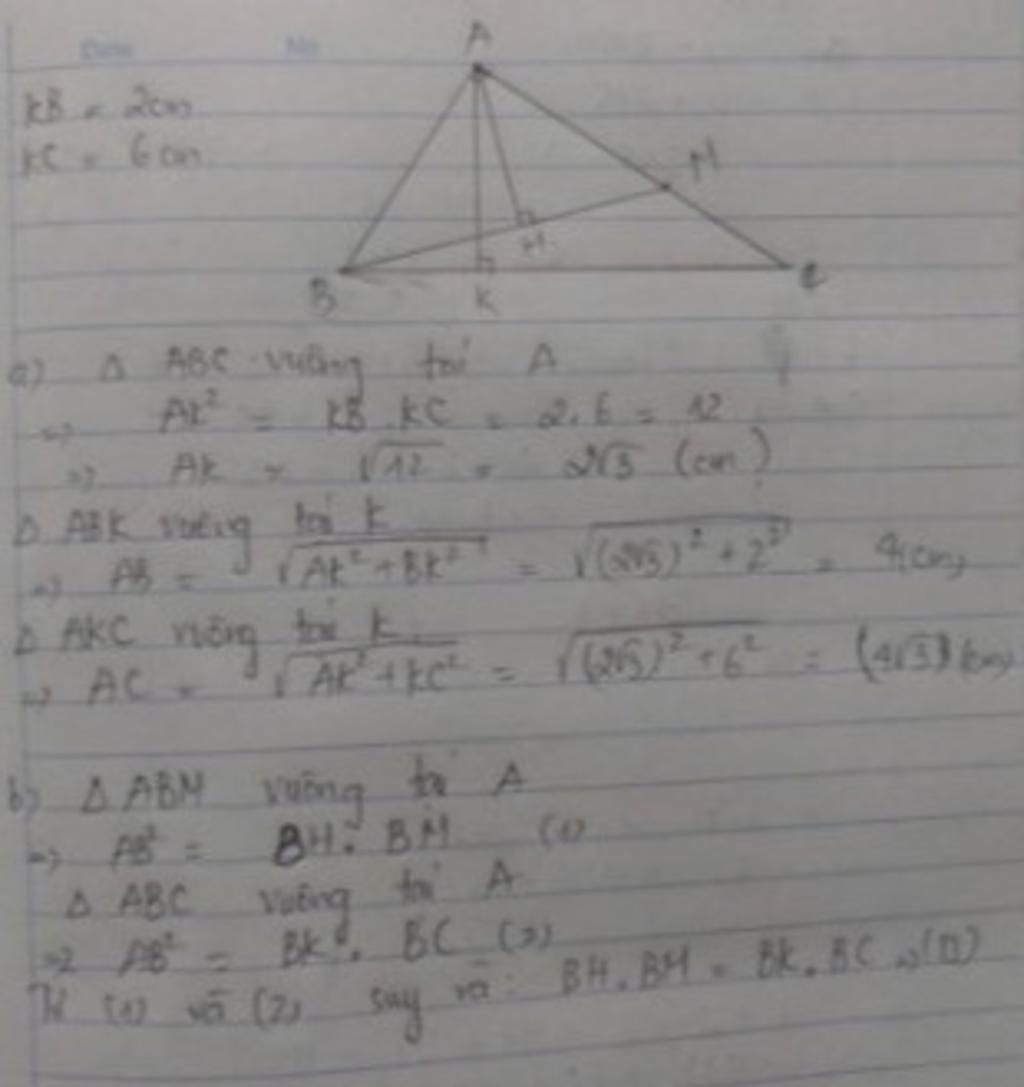 Date No
A
KB = 2cm
KC = 6cm
M
H
B K C
a) Δ ABC vuông tại A
=> AK² = KB . KC = 2.6 = 12
=> AK = √12 = 2√3 (cm)
Δ ABK vuông tại K
=> AB = √AK² + BK² = √(2√3)² + 2² = 4(cm)
Δ AKC vuông tại K
=> AC = √AK² + KC² = √(2√3)² + 6² = (4√3) (cm)
b) Δ ABM vuông tại A
=> AB² = BH . BM (1)
Δ ABC vuông tại A
=> AB² = BK . BC (2)
Từ (1) và (2) suy ra: BH . BM = BK . BC